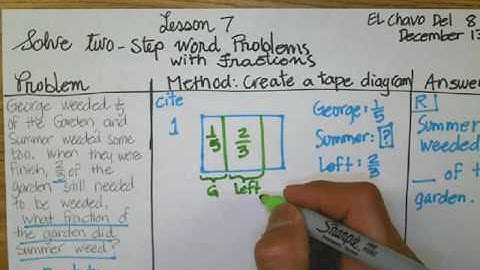 Lesson 7
El Chavo Del 8
Solve two-step Word Problems
December 13
with Fractions
Problem
Method: Create a tape diagram
Answer
George weeded 1/5
of the Garden, and
Summer weeded some
too. When they were
finish, 2/3 of the
garden still needed
to be weeded,
what fraction of
the garden did
summer weed?
Cite
1
1/5 2/3
G Left
George: 1/5
Summer: ?
Left: 2/3
R
Summer
weeded
__ of t
garden.
Sharpie